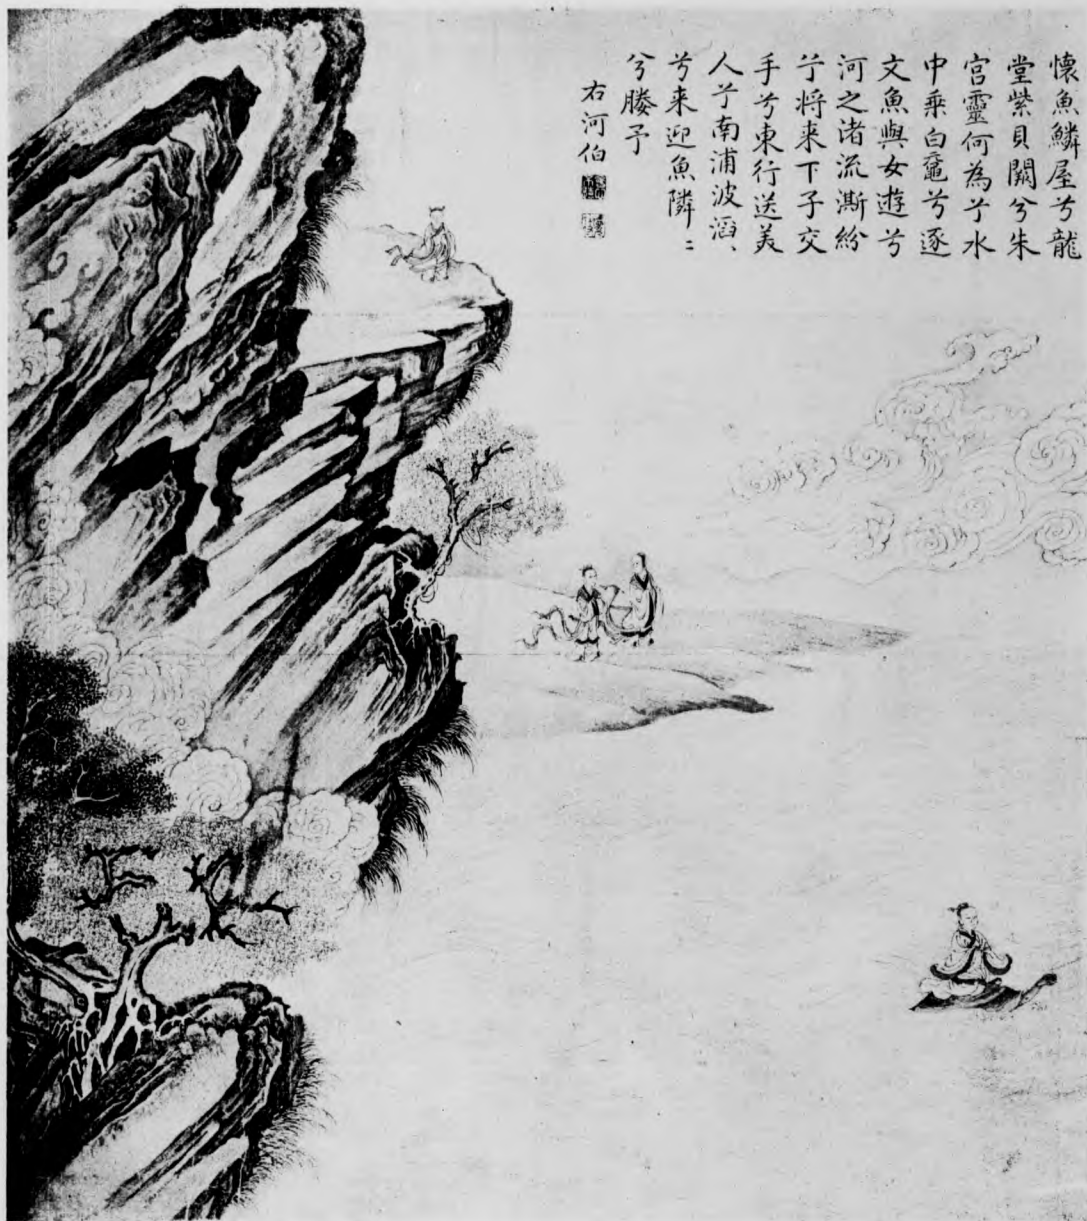 懷魚鱗屋兮龍
堂紫貝闕兮朱
宮靈何為兮水
中乘白黿兮逐
文魚與女遊兮
河之渚流澌紛
兮將来下子交
手兮東行送美
人兮南浦波滔、
兮来迎魚隣〻
兮媵予
右河伯